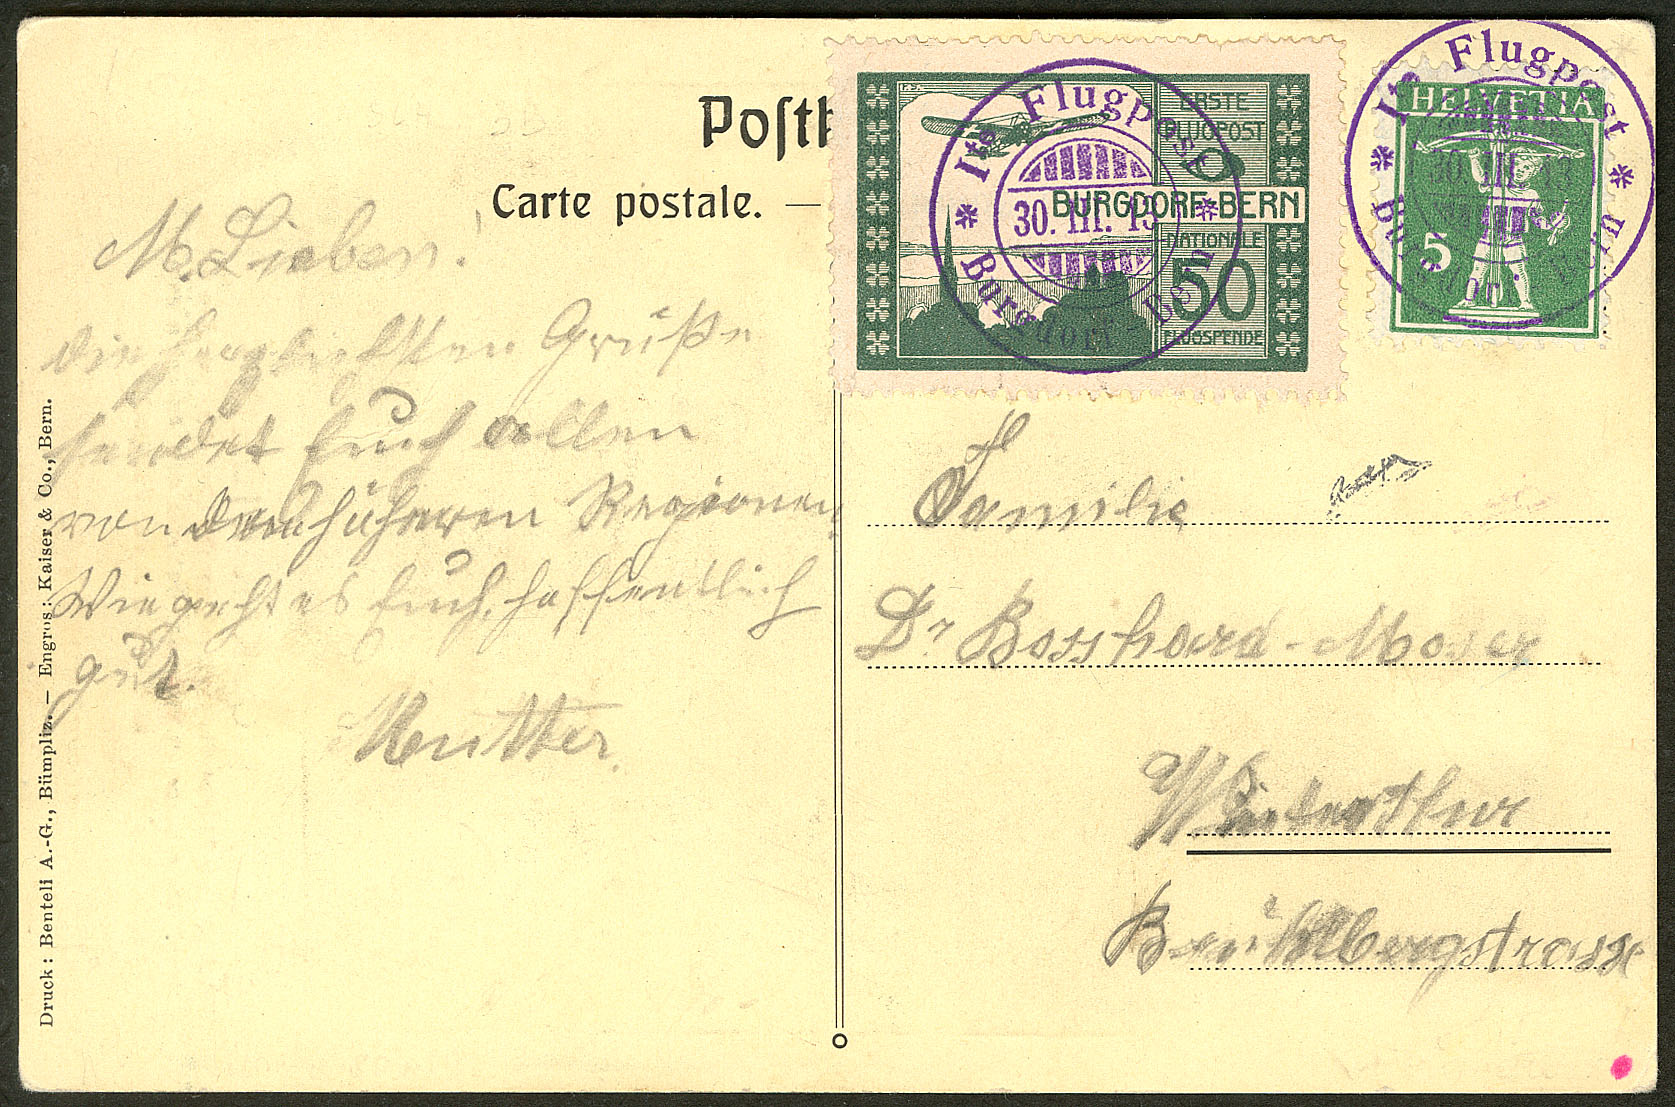 Postk
Carte postale. —
M. Lieben!
die herzlichsten Grüße
sendet Euch allen
von den höheren Regionen.
Wie geht es Euch, hoffentlich
gut.
Mutter.
Druck: Benteli A.-G., Bümpliz. — Engros: Kaiser & Co., Bern.
ERSTE
FLUGPOST
BURGDORF-BERN
NATIONALE
50
FLUGSPENDE
Ite Flugpost
30. III. 13
Burgdorf Bern
HELVETIA
5
Ite Flugpost
30. III. 13
Burgdorf Bern
Familie
Dr Bosshard-Moser
Winterthur
Brühlbergstrasse